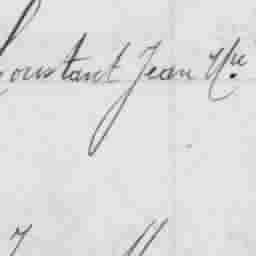 Constant Jean Mie